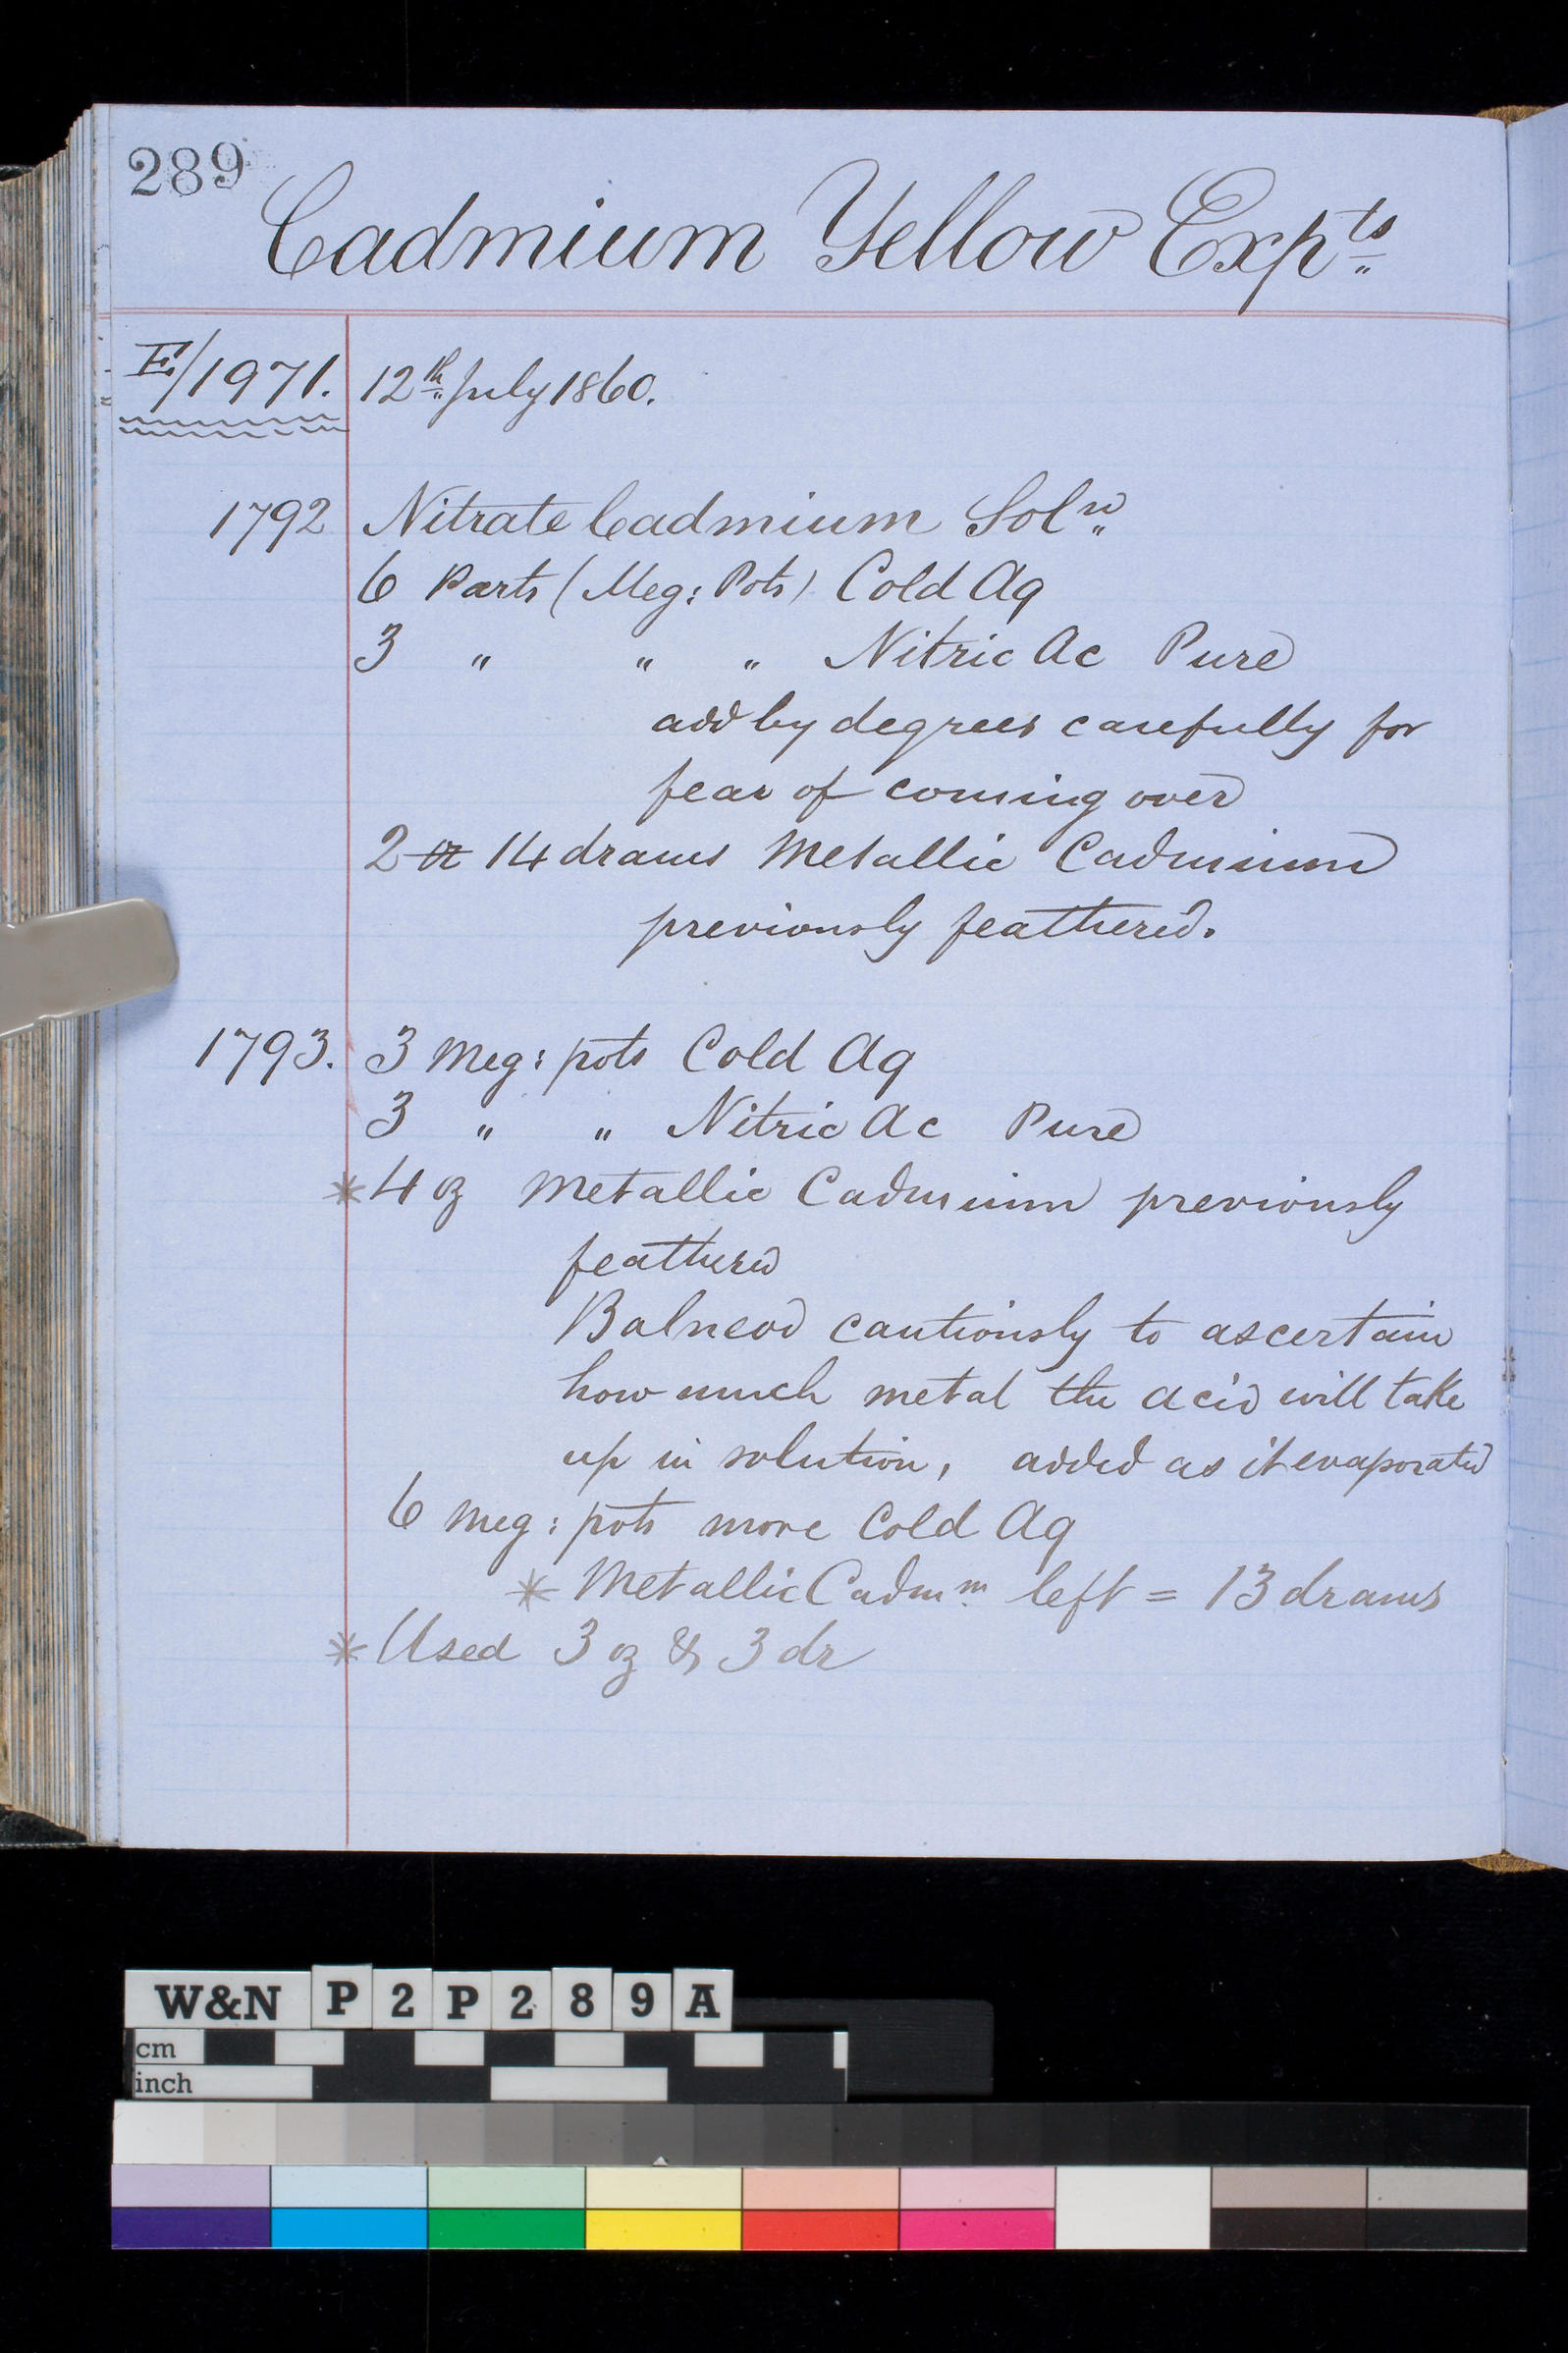 289
Cadmium Yellow Expts
E/1971. 12th July 1860.
1792 Nitrate Cadmium Soln
6 Parts (Meg: Pots) Cold Aq
3 " " " Nitric Ac Pure
add by degrees carefully for
fear of coming over
2 or 14 drams Metallic Cadmium
previously feathered.
1793. 3 Meg: pots Cold Aq
3 " " Nitric Ac Pure
*4 oz Metallic Cadmium previously
feathered
Balneod cautiously to ascertain
how much metal the acid will take
up in solution, added as it evaporated
6 Meg: pots more Cold Aq
* Metallic Cadmm left = 13 drams
* Used 3 oz & 3 dr
W&N P2P289A
cm
inch